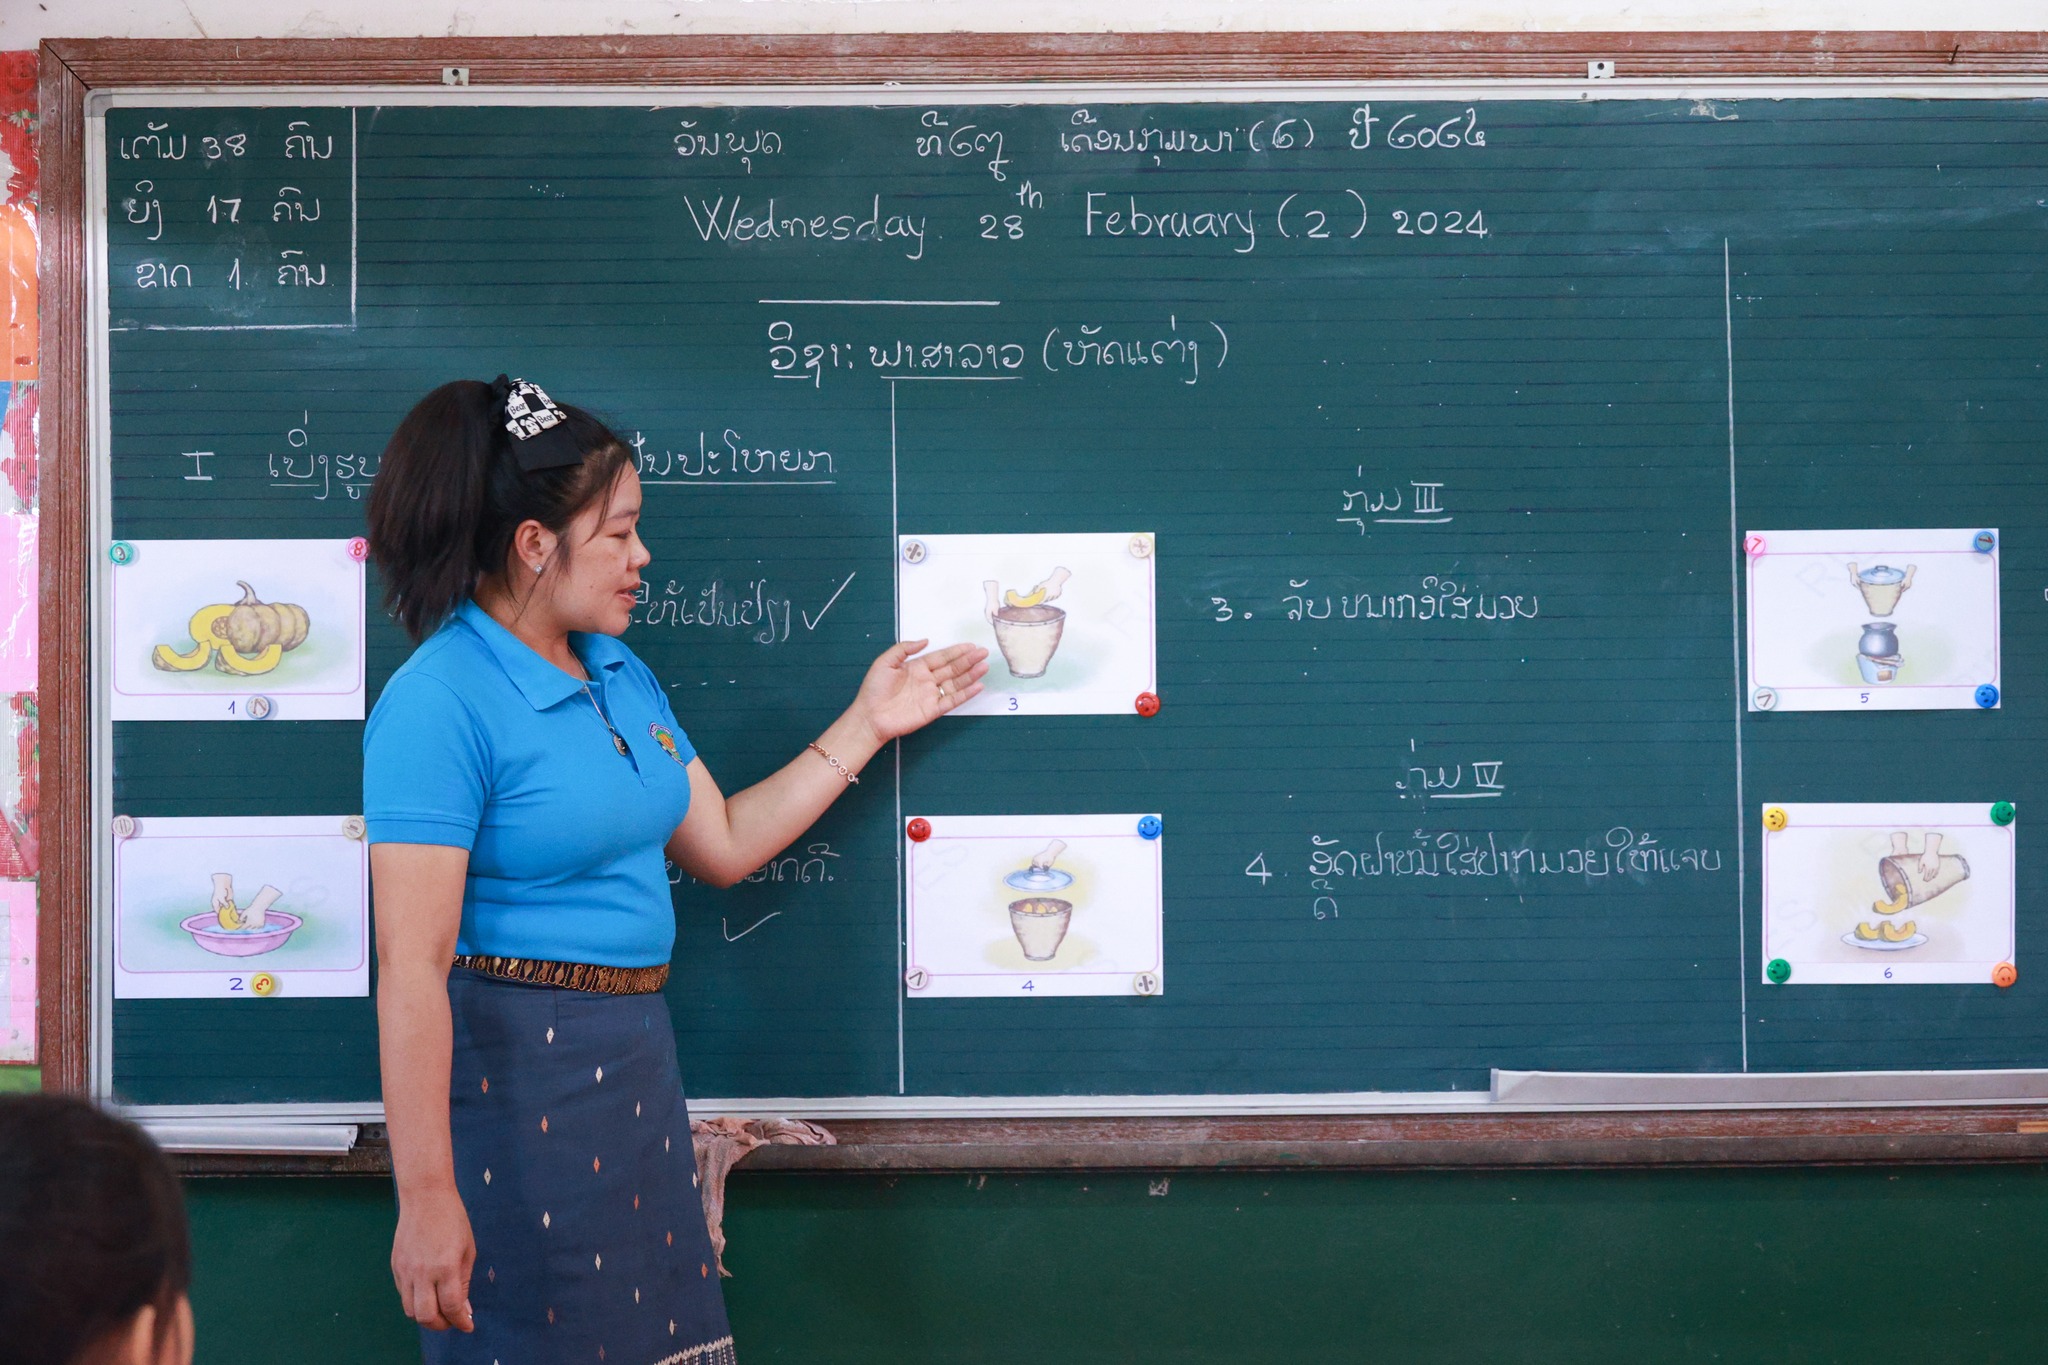 ເຕັມ 38 ຄົນ
ຍິງ 17 ຄົນ
ຂາດ 1 ຄົນ
ວັນພຸດ ທີ໒໘ ເດືອນກຸມພາ (໒) ປີ ໒໐໒໔
Wednesday 28th February (2) 2024
ວິຊາ: ພາສາລາວ (ຫັດແຕ່ງ)
I ເບິ່ງຮູບ
ປະໂຫຍກ
ໃຫ້ເປັນປ່ຽງ ✓
✓
1
2
3
4
ກຸ່ມ III
3. ລົບ ໝາກອຶໃສ່ມວຍ
ກຸ່ມ IV
4. ອັດຝາໝໍ້ໃສ່ປາກມວຍໃຫ້ແຈບ
ດີ
5
6